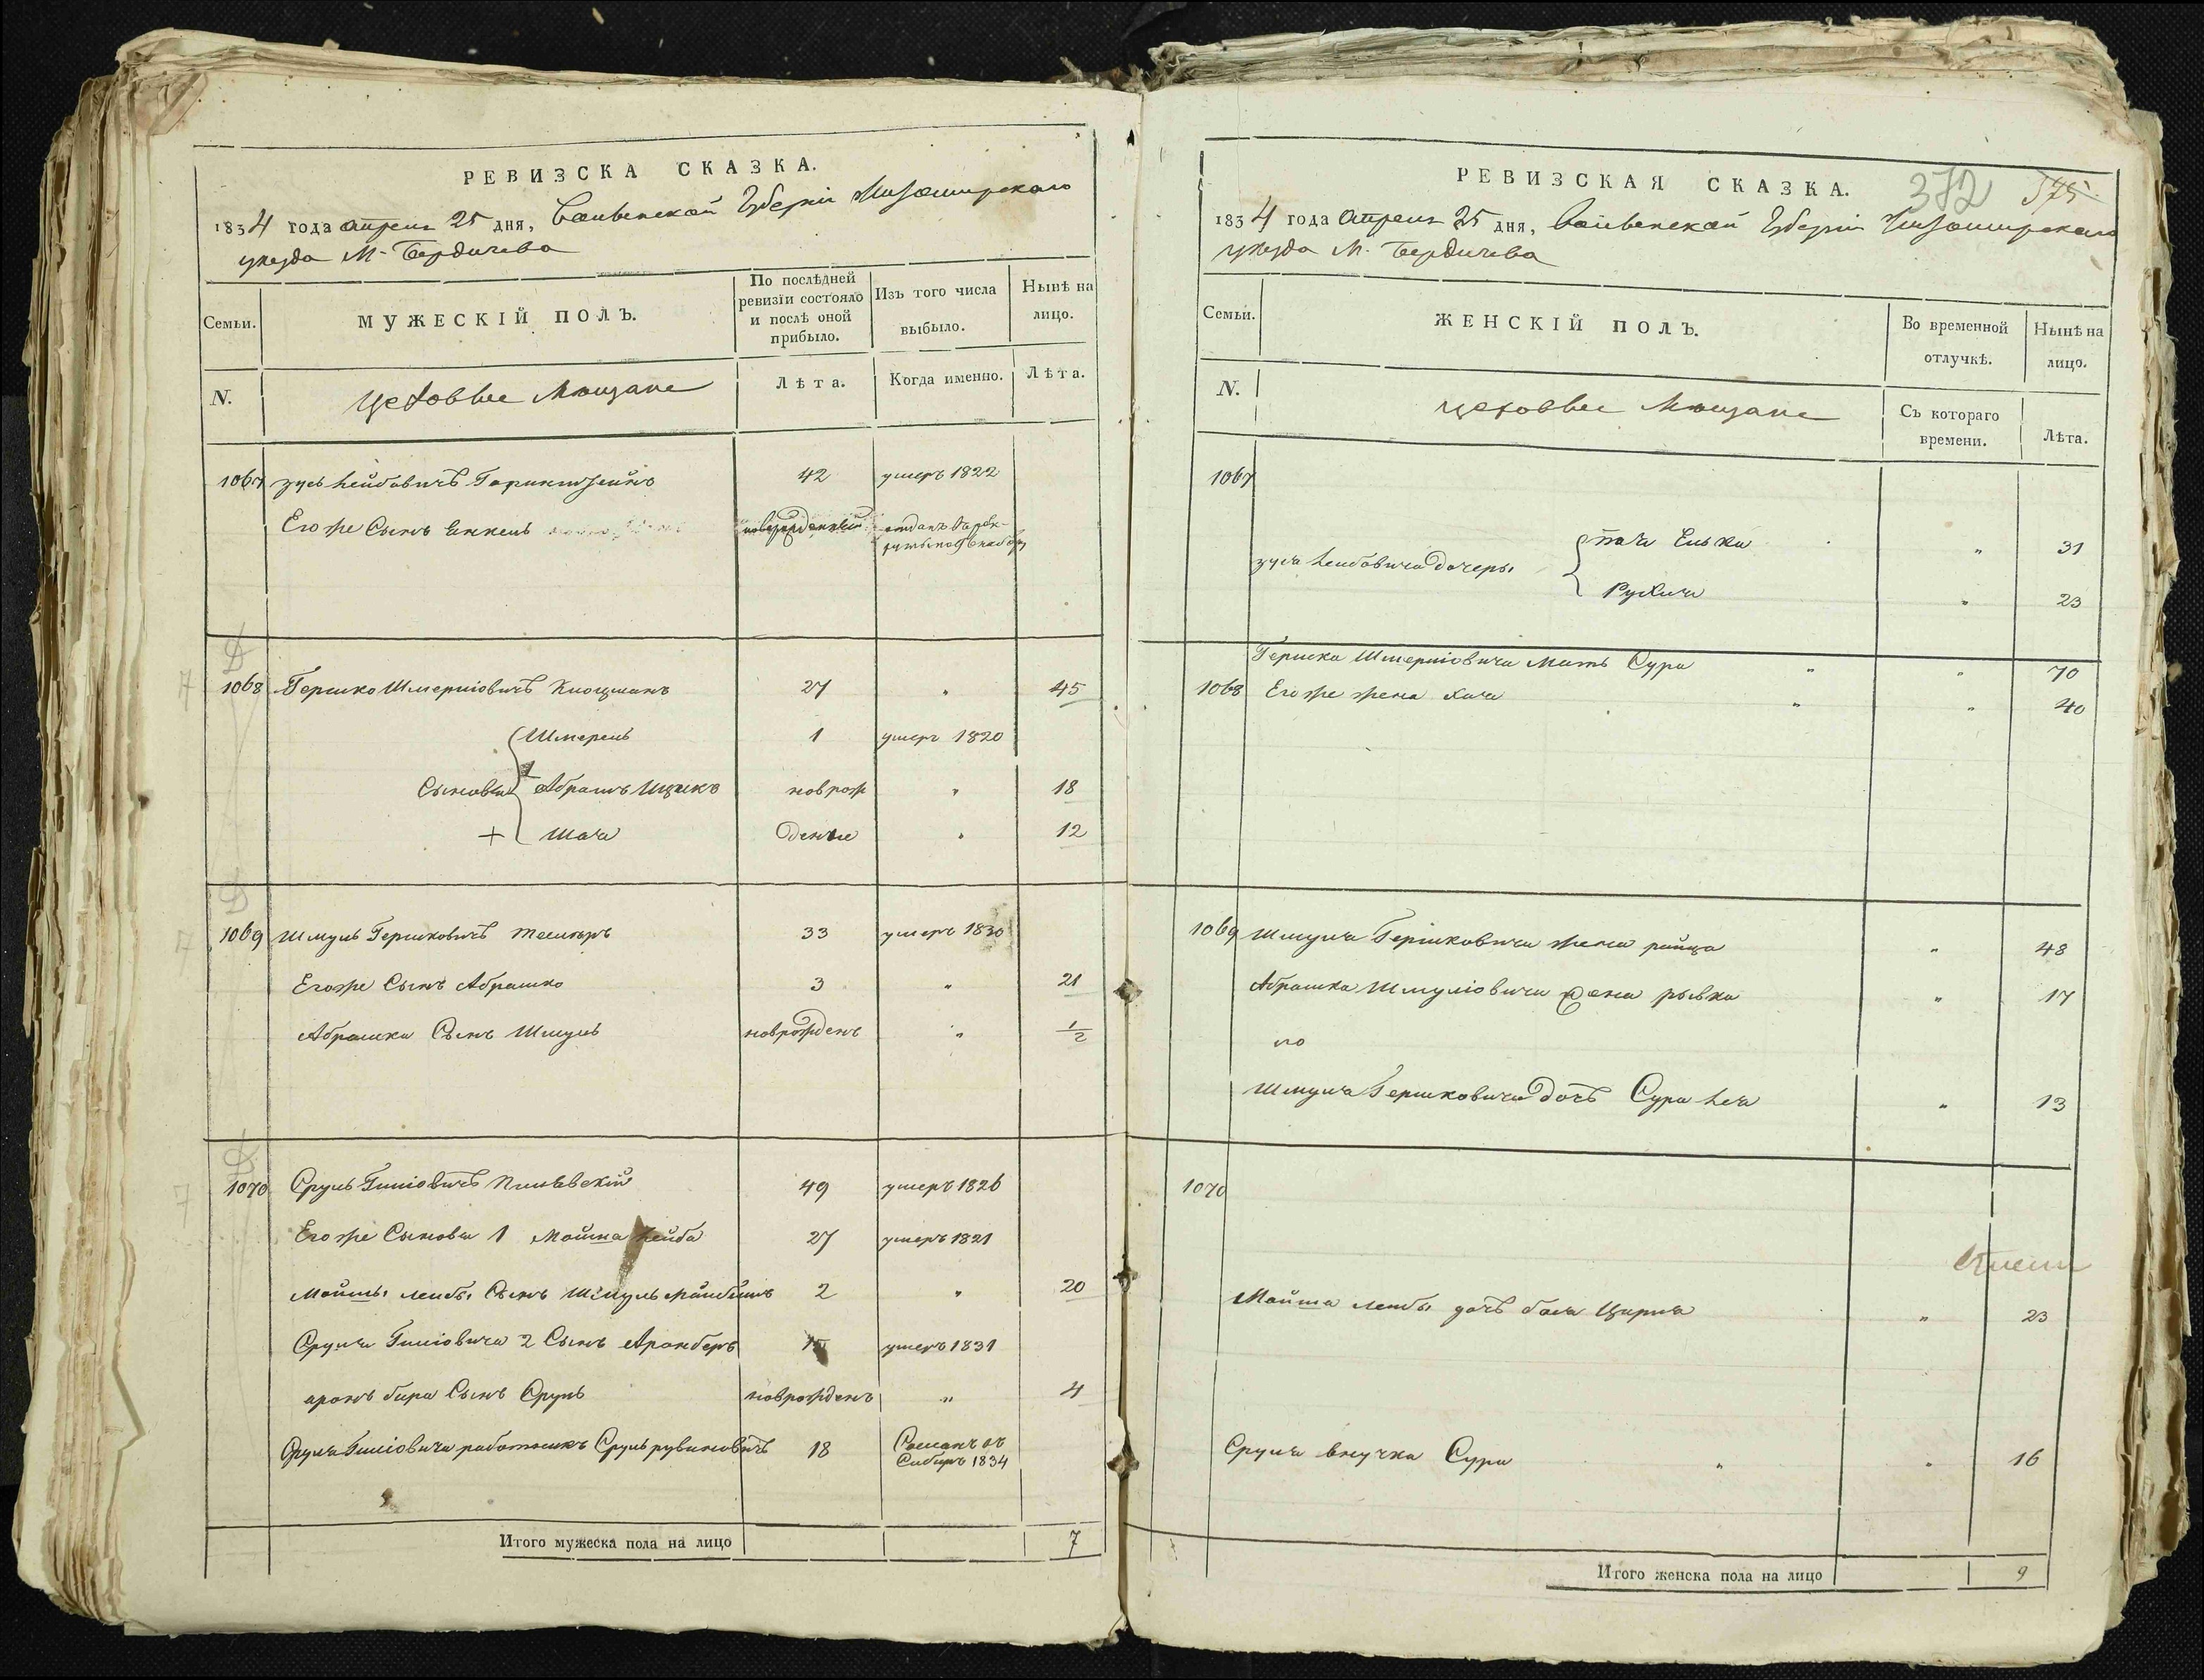 РЕВИЗСКА СКАЗКА.
1834 года апреля 25 дня, Волынской Губерніи Житомирскаго
уѣзда М. Бердичева
Семьи.
МУЖЕСКІЙ ПОЛЪ.
По послѣдней ревизіи состояло и послѣ оной прибыло.
Изъ того числа выбыло.
Нынѣ на лицо.
N.
Цеховые Мещане
Лѣта.
Когда именно.
Лѣта.
1067 Зусь Лейбовичъ 42 умеръ 1822
Его же Сынъ Янкель
1068 Гершко Шмерліовичъ 27 " 45
Шмерель 1 умеръ 1820
Сыновья Абрамъ Ицикъ новрож " 18
+ Шая денные " 12
1069 Шмуль Гершковичъ 33 умеръ 1830
Его же Сынъ Абрашко 3 " 21
Абрашка Сынъ Шмуль новрожденъ " 1/2
1070 Сруль 49 умеръ 1826
Его же Сыновья 1 Мошка Лейба 27 умеръ 1821
Сынъ Шмуль 2 " 20
Сруля 2 Сынъ Аронберъ умеръ 1831
аронъ бера Сынъ Сруль новрожденъ " 4
Сруля работникъ Сруль рувиновичъ 18 Сосланъ въ
Сибирь 1834
Итого мужеска пола на лицо 7
РЕВИЗСКАЯ СКАЗКА. 372 375
1834 года апреля 25 дня, Волынской Губерніи Житомирскаго
уѣзда М. Бердичева
Семьи.
ЖЕНСКІЙ ПОЛЪ.
Во временной отлучкѣ.
Нынѣ на лицо.
N.
цеховые Мещане
Съ котораго времени.
Лѣта.
1067
Елька " 31
Зуся Лейбовича дочеры
Рухля " 23
Гершка Шмерліовича мать Сура " " 70
1068 Его же жена Хая " " 40
1069 Шмуля Гершковича жена райца " 48
Абрашка Шмуліовича жена рывка " 17
Шмуля Гершковича дочь Сура Лея " 13
1070
Лейбы дочь " 23
Сруля внучка Сура " " 16
Итого женска пола на лицо 9